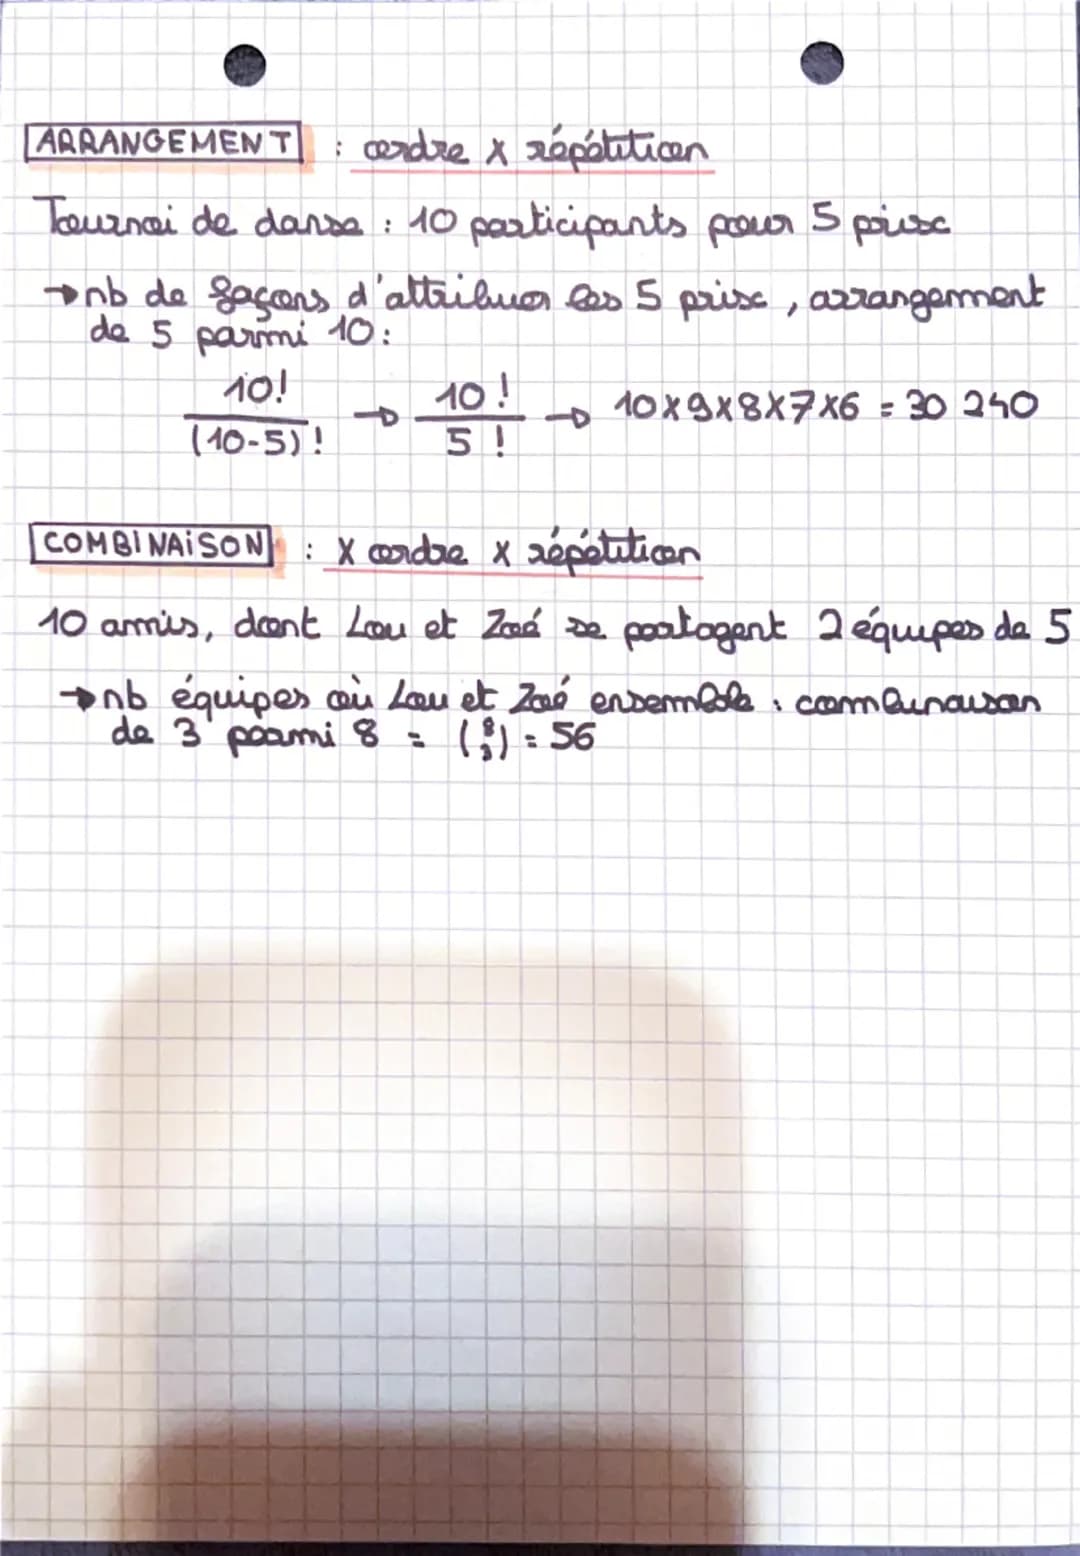 ARRANGEMENT : ordre x répétition
Tournoi de danse : 10 participants pour 5 prix
→ nb de façons d'attribuer les 5 prix, arrangement
de 5 parmi 10 :
10! / (10-5)! → 10! / 5! → 10x9x8x7x6 = 30 240
COMBINAISON : x ordre x répétition
10 amis, dont Lou et Zoé se partagent 2 équipes de 5
→ nb équipes où Lou et Zoé ensemble : combinaison
de 3 parmi 8 = (8 3) = 56